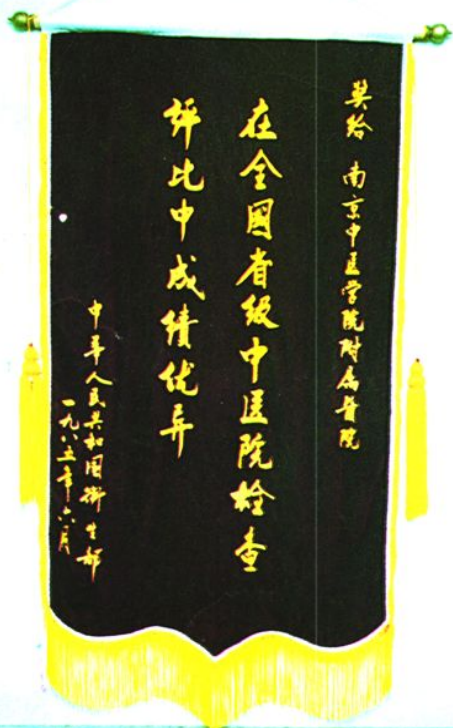 奖给 南京中医学院附属医院
在全国省级中医院检查
评比中成绩优异
中华人民共和国衛生部
一九八五年六月